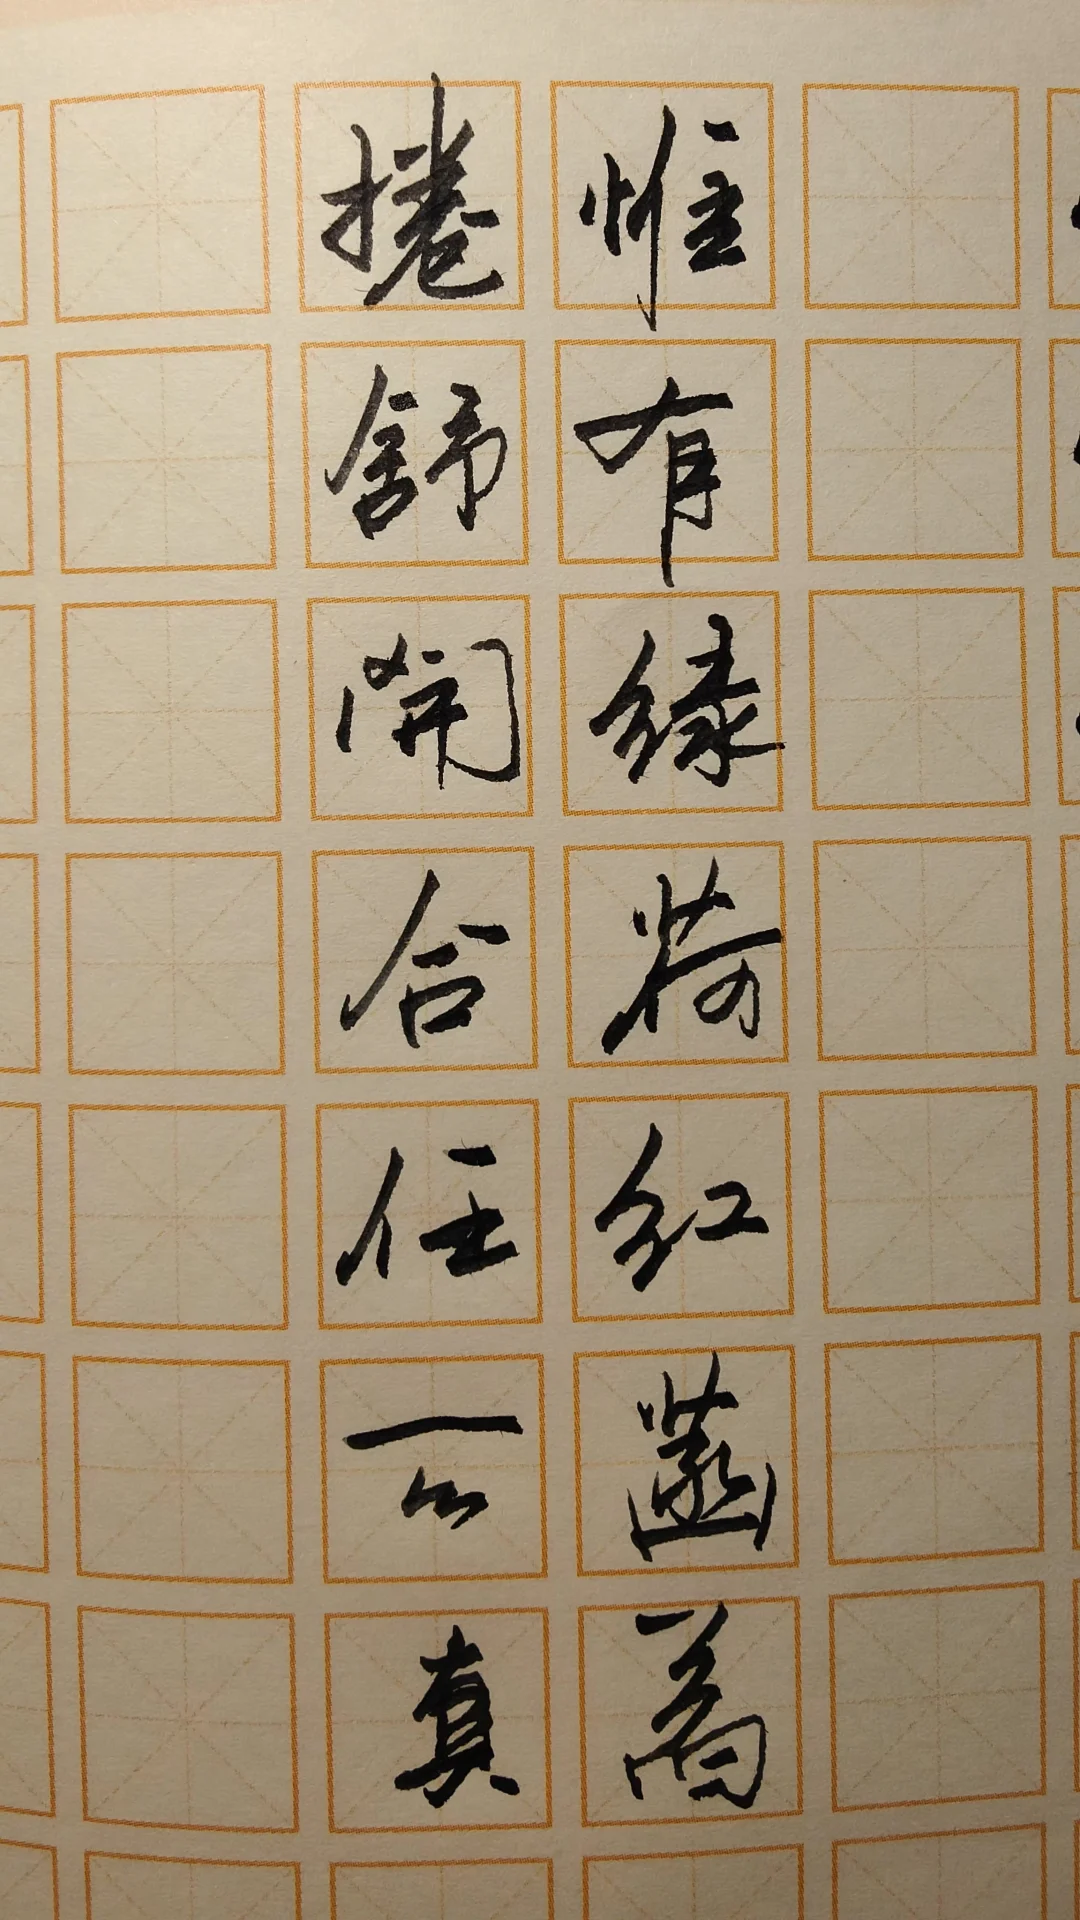 惟有绿荷红菡萏
捲舒開合任天真